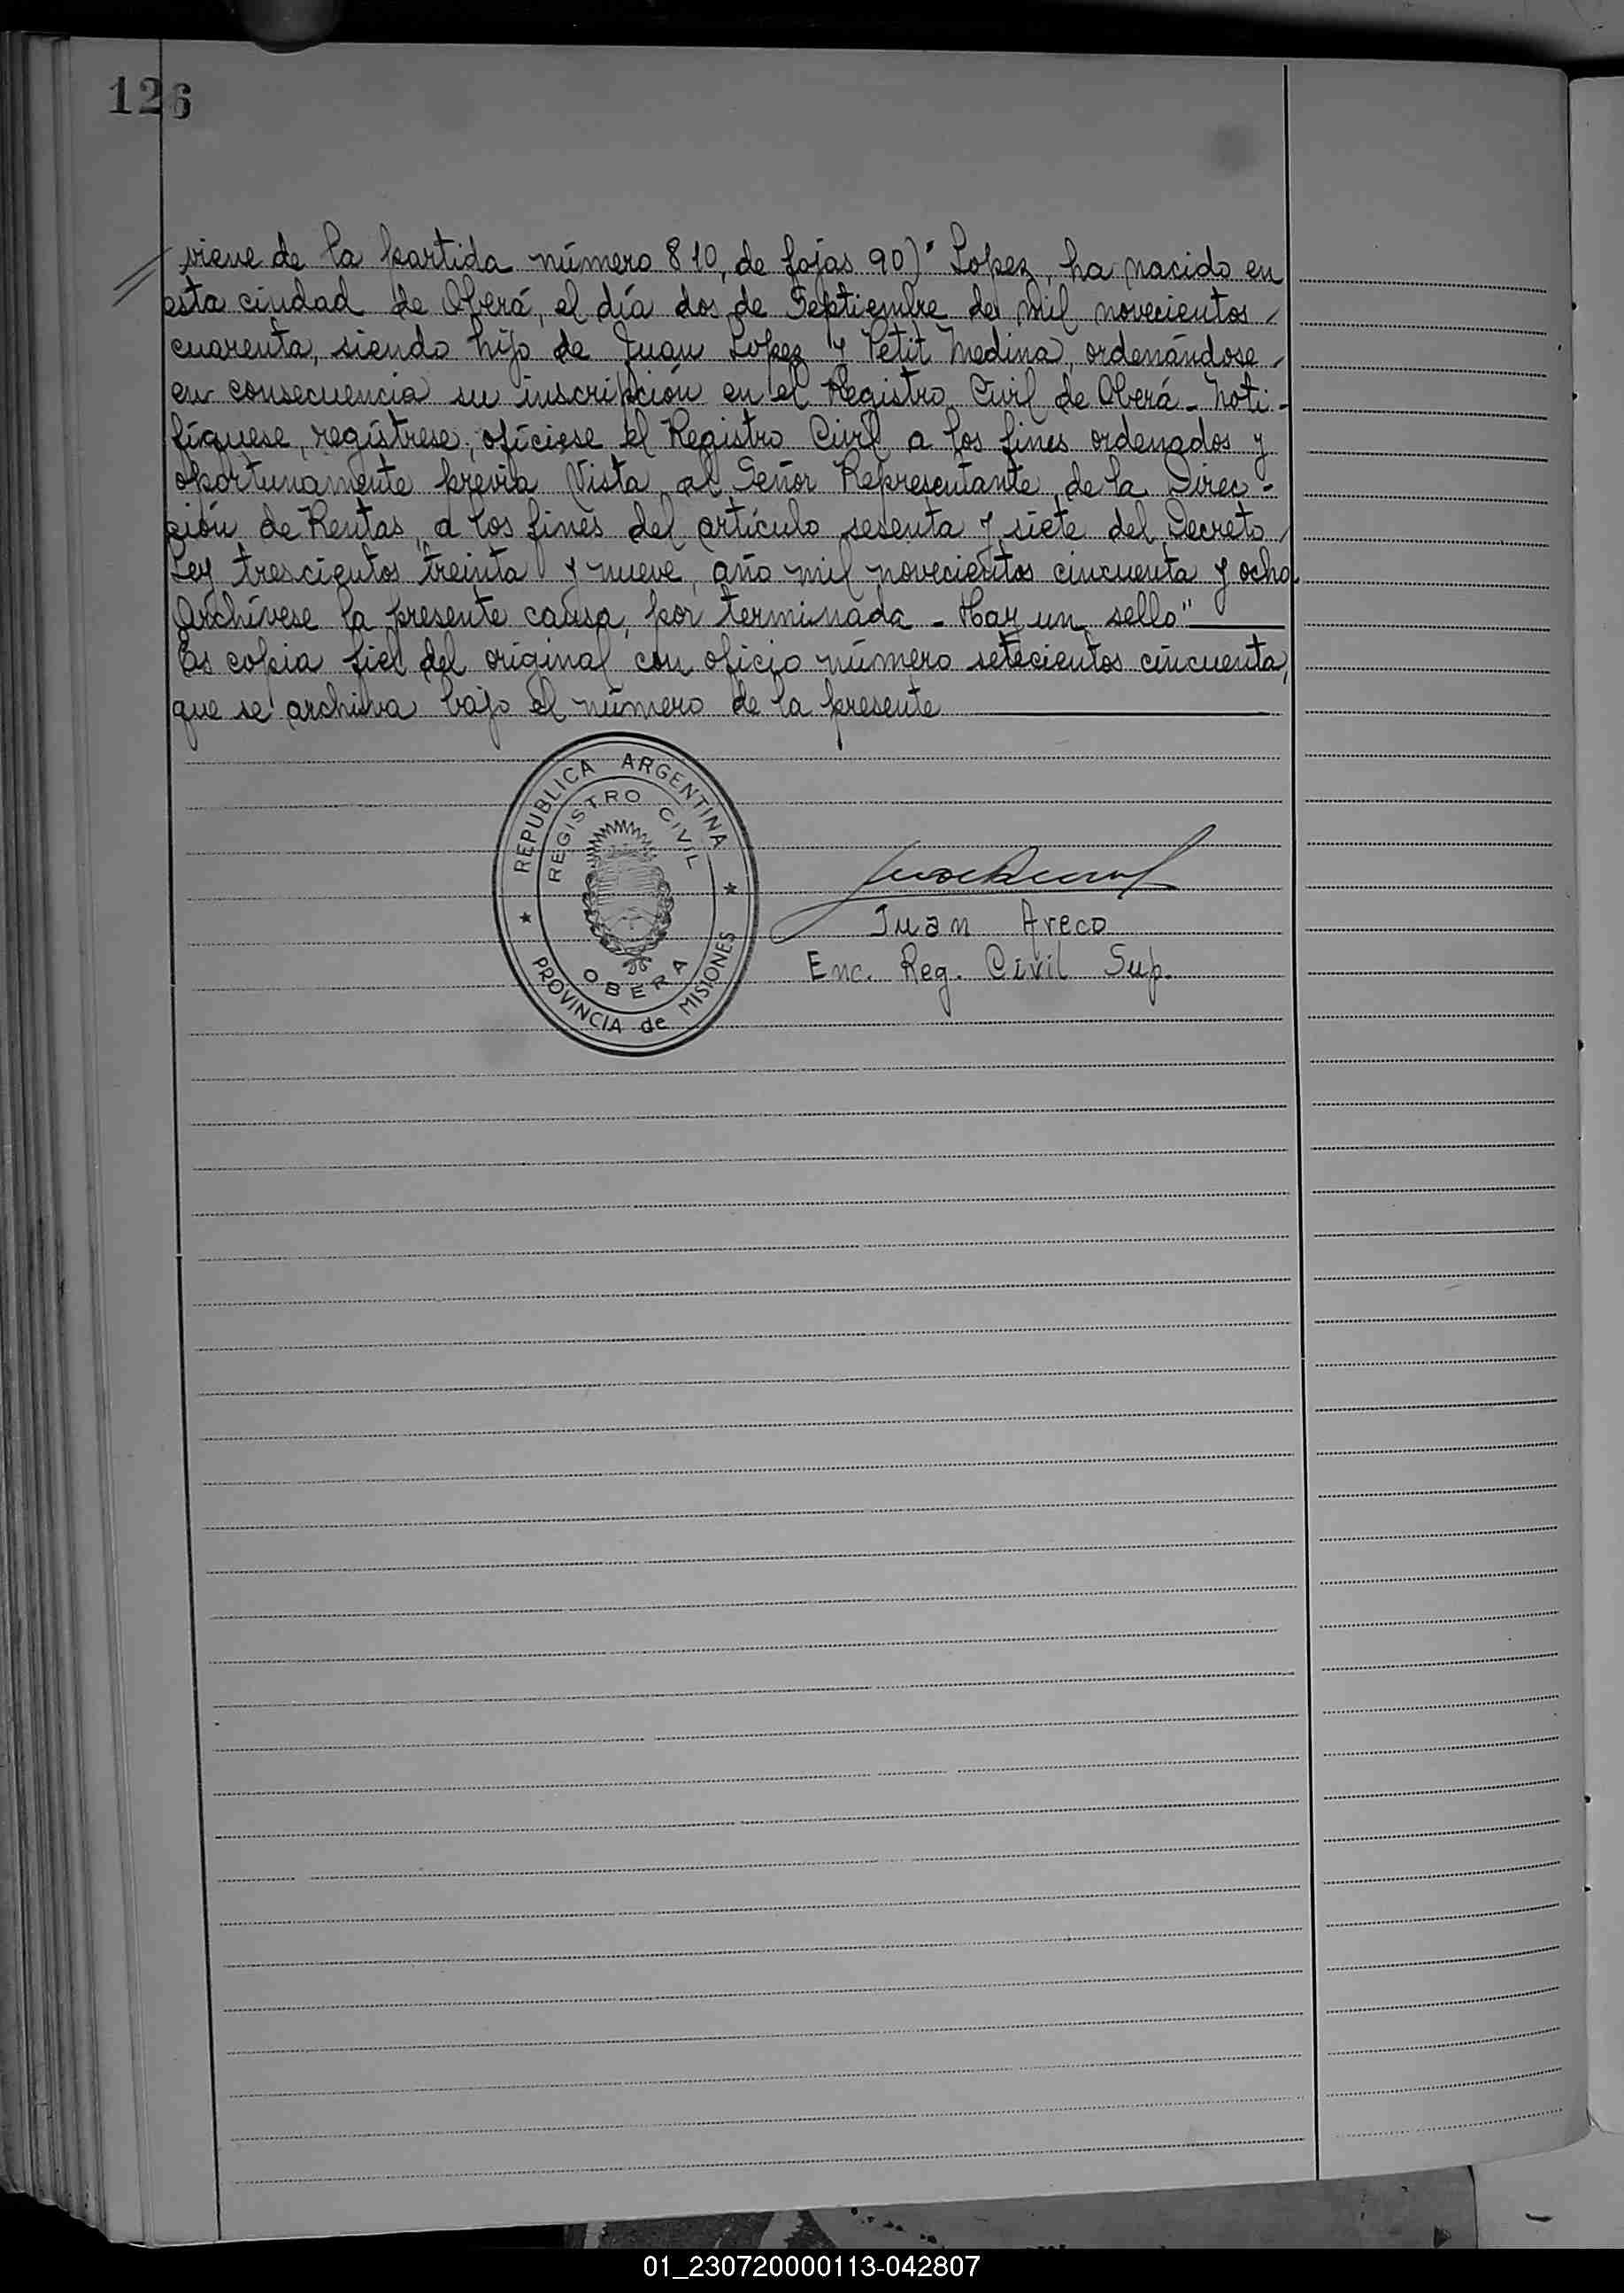 126
// viene de la partida número 810, de fojas 90)" Lopez, ha nacido en
esta ciudad de Oberá, el día dos de Septiembre de mil novecientos /
cuarenta, siendo hijo de Juan Lopez y Petit Medina, ordenándose /
en consecuencia su inscripción en el Registro Civil de Oberá - Noti-
fíquese, regístrese, ofíciese el Registro Civil a los fines ordenados y
oportunamente previa Vista al Señor Representante de la Direc-
ción de Rentas, a los fines del artículo sesenta y siete del Decreto /
Ley trescientos treinta y nueve, año mil novecientos cincuenta y ocho.
Archívese la presente causa, por terminada - Hay un sello"
Es copia fiel del original con oficio número setecientos cincuenta,
que se archiva bajo el número de la presente
REPUBLICA ARGENTINA
REGISTRO CIVIL
OBERA
PROVINCIA de MISIONES
Juan Areco
Enc. Reg. Civil Sup.
01_230720000113-042807